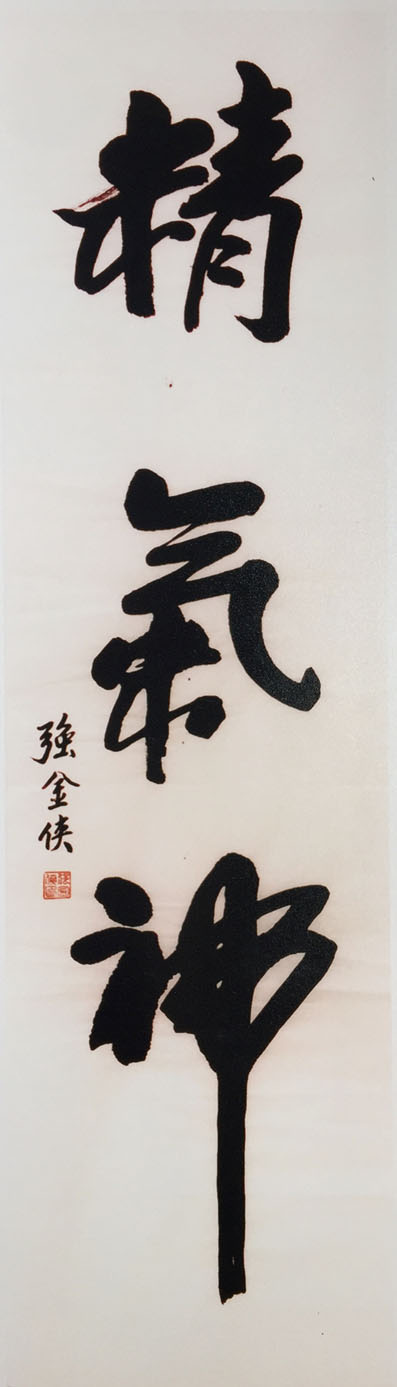 精氣神
強金俠